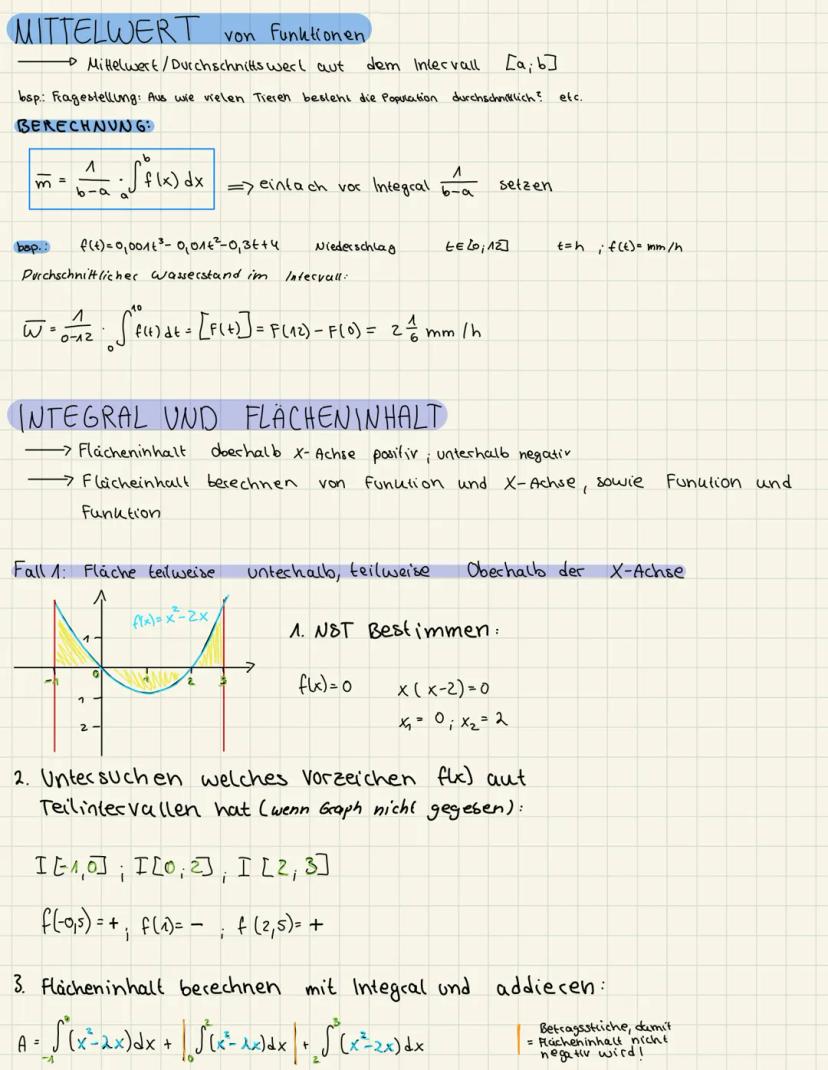 MITTELWERT von Funktionen
→ Mittelwert/Durchschnittswert auf dem Intervall [a;b]
bsp.: Fragestellung: Aus wie vielen Tieren besteht die Population durchschnittlich? etc.
BERECHNUNG:
m̅ = 1/(b-a) · ∫_a^b f(x) dx ⇒ einfach vor Integral 1/(b-a) setzen
bsp.: f(t)=0,001t³- 0,01t²-0,3t+4 Niederschlag t∈[0;12] t=h ; f(t)= mm/h
Durchschnittlicher Wasserstand im Intervall:
w̅ = 1/(0-12) · ∫_0^10 f(t) dt = [F(t)] = F(12) - F(0) = 2 1/6 mm /h
INTEGRAL UND FLÄCHENINHALT
→ Flächeninhalt oberhalb X-Achse positiv ; unterhalb negativ
→ Flächeinhalt berechnen von Funktion und X-Achse, sowie Funktion und
Funktion
Fall 1: Fläche teilweise unterhalb, teilweise Oberhalb der X-Achse
f(x)=x²-2x
1
-1 0 1 2 3
1
2
1. NST Bestimmen:
f(x)=0 x(x-2)=0
x₁ = 0 ; x₂ = 2
2. Untersuchen welches Vorzeichen f(x) auf
Teilintervallen hat (wenn Graph nicht gegeben):
I[-1,0] ; I[0;2] ; I[2;3]
f(-0,5) = + ; f(1) = - ; f(2,5) = +
3. Flächeninhalt berechnen mit Integral und addieren:
A = ∫_-1^0 (x²-2x)dx + |∫_0^2 (x²-2x)dx| + ∫_2^3 (x²-2x)dx
| = Betragsstriche, damit
Flächeninhalt nicht
negativ wird!